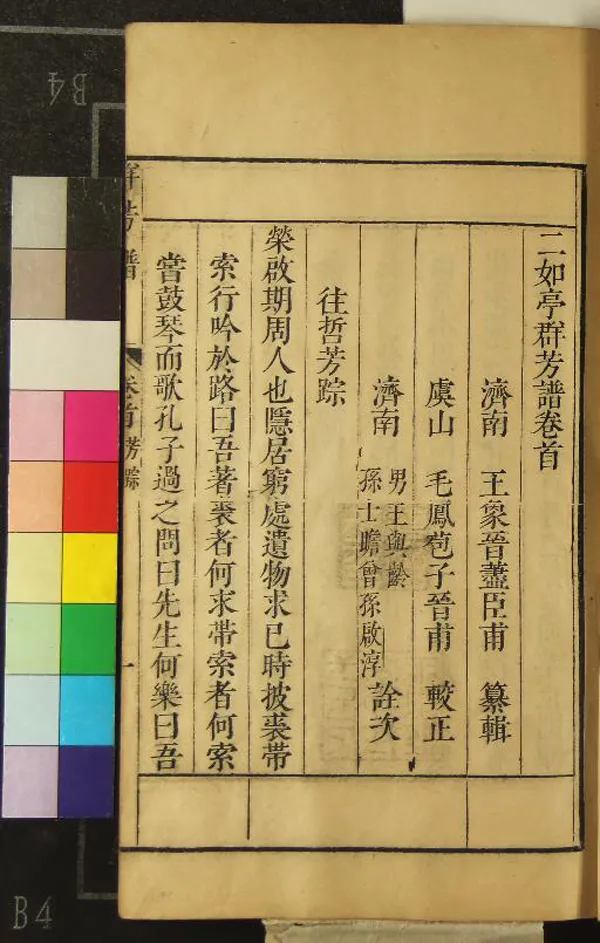 二如亭群芳譜卷首
濟南 王象晉藎臣甫 纂輯
虞山 毛鳳苞子晉甫 較正
濟南 男王與齡 孫士瞻曾孫啟淳 詮次
往哲芳踪
榮啟期周人也隱居窮處遺物求已時披裘帶
索行吟於路曰吾著裘者何求帶索者何索
嘗鼓琴而歌孔子過之問曰先生何樂曰吾
群芳譜 卷首 芳踪 一
B4
B4